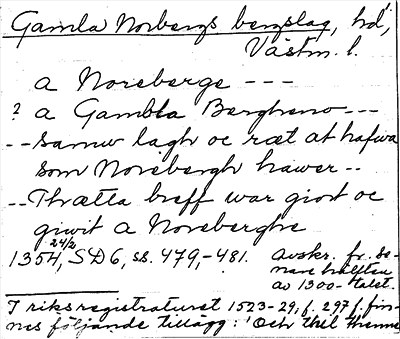 Gamla Norbergs bergslag, hd,
Västm. l.
a Noreberge ---
? a Gambla Bergheno ---
-- samu lagh oc ræt at hafwa
som Norebergh hawer --
-- Thætta breff war giort oc
giwit a Noreberghe
1354 24/2, SD6, ss. 479,-481. Avskr. fr. se-
nare hälften
av 1300-talet.
I riksregistraturet 1523-29, f. 297 f. fin-
nes följande tillägg: "Och thil thenne